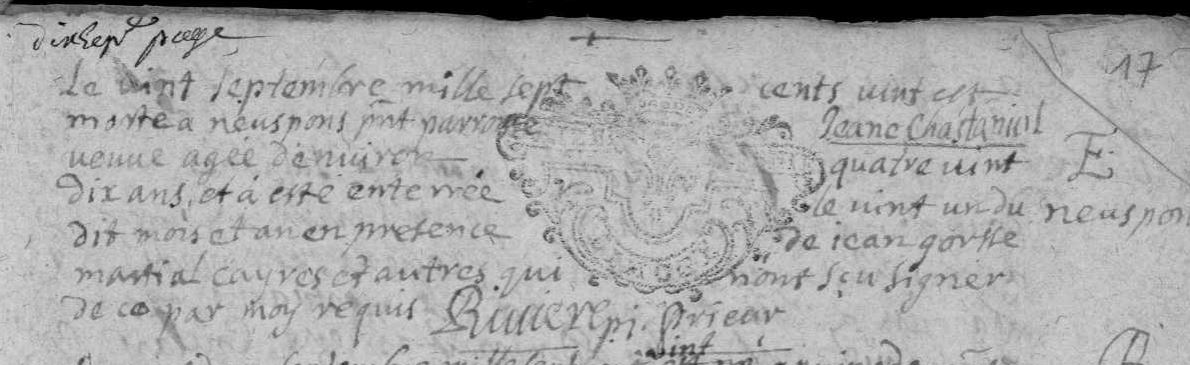 dixsept page
17
Le vint septembre mille sept cents vint est
morte a neuspons pñt parroisse Jeane Chastaniol
veuve agee denviron quatre vint E
dix ans, et à esté enterrée le vint un du neuspon
dit mois et an en presence de jean gorsse
martial cayres et autres qui n'ont sçu signer
de ce par moy requis Riviere prieur
vint